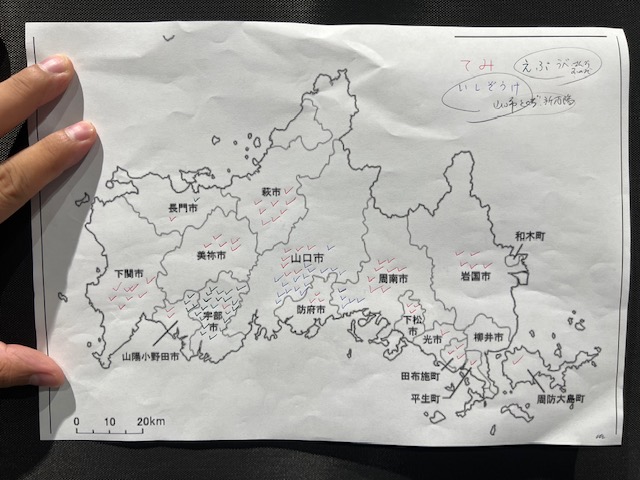 てみ えぷ うべ
いしぞうけ
山口市
萩市
長門市
美祢市
山口市
下関市
宇部市
防府市
周南市
岩国市
和木町
下松市
光市
柳井市
山陽小野田市
田布施町
平生町
周防大島町
0 10 20km